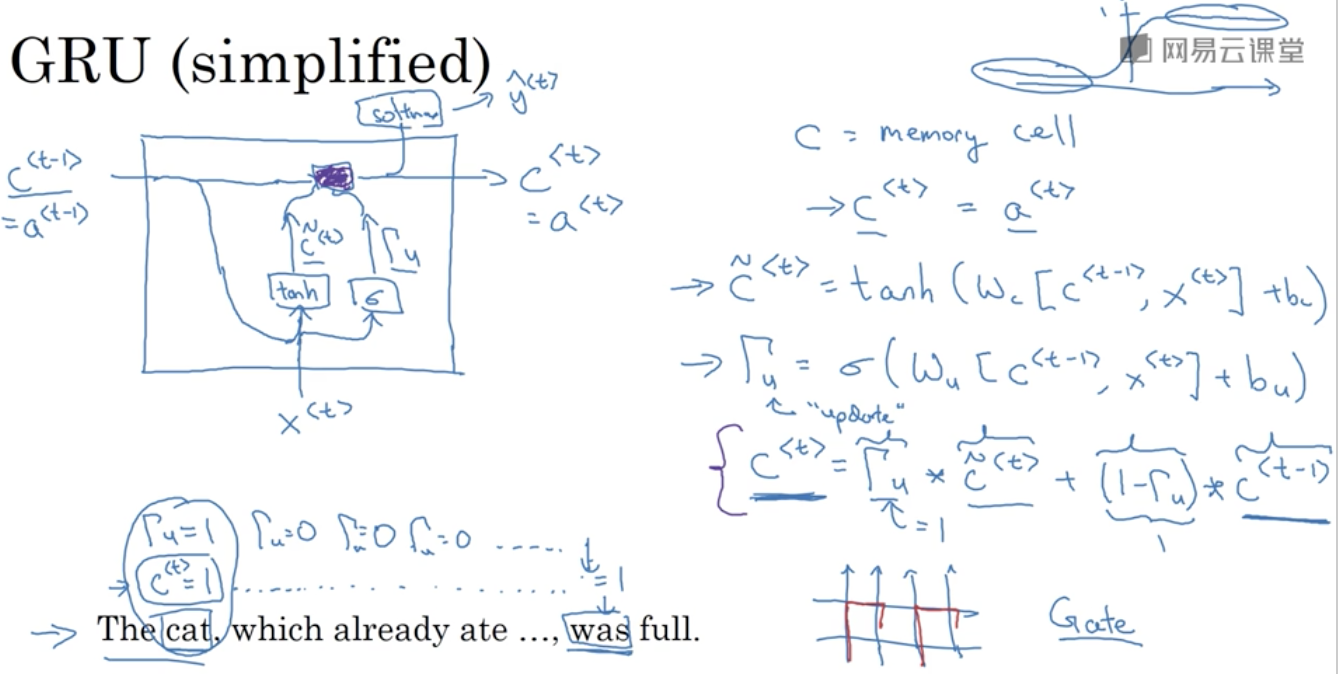 GRU (simplified)
网易云课堂
softmax → ŷ<t>
c<t-1>
= a<t-1>
c̃<t>
Γu
tanh
σ
x<t>
c<t>
= a<t>
1
C = memory cell
→ c<t> = a<t>
→ c̃<t> = tanh (Wc [c<t-1>, x<t>] + bc)
→ Γu = σ (Wu [c<t-1>, x<t>] + bu)
"update"
c<t> = Γu * c̃<t> + (1-Γu) * c<t-1>
= 1
1
Γu=1 Γu=0 Γu=0 Γu=0 .....
→ c<t>=1 ........... =1
→ The cat, which already ate ..., was full.
Gate